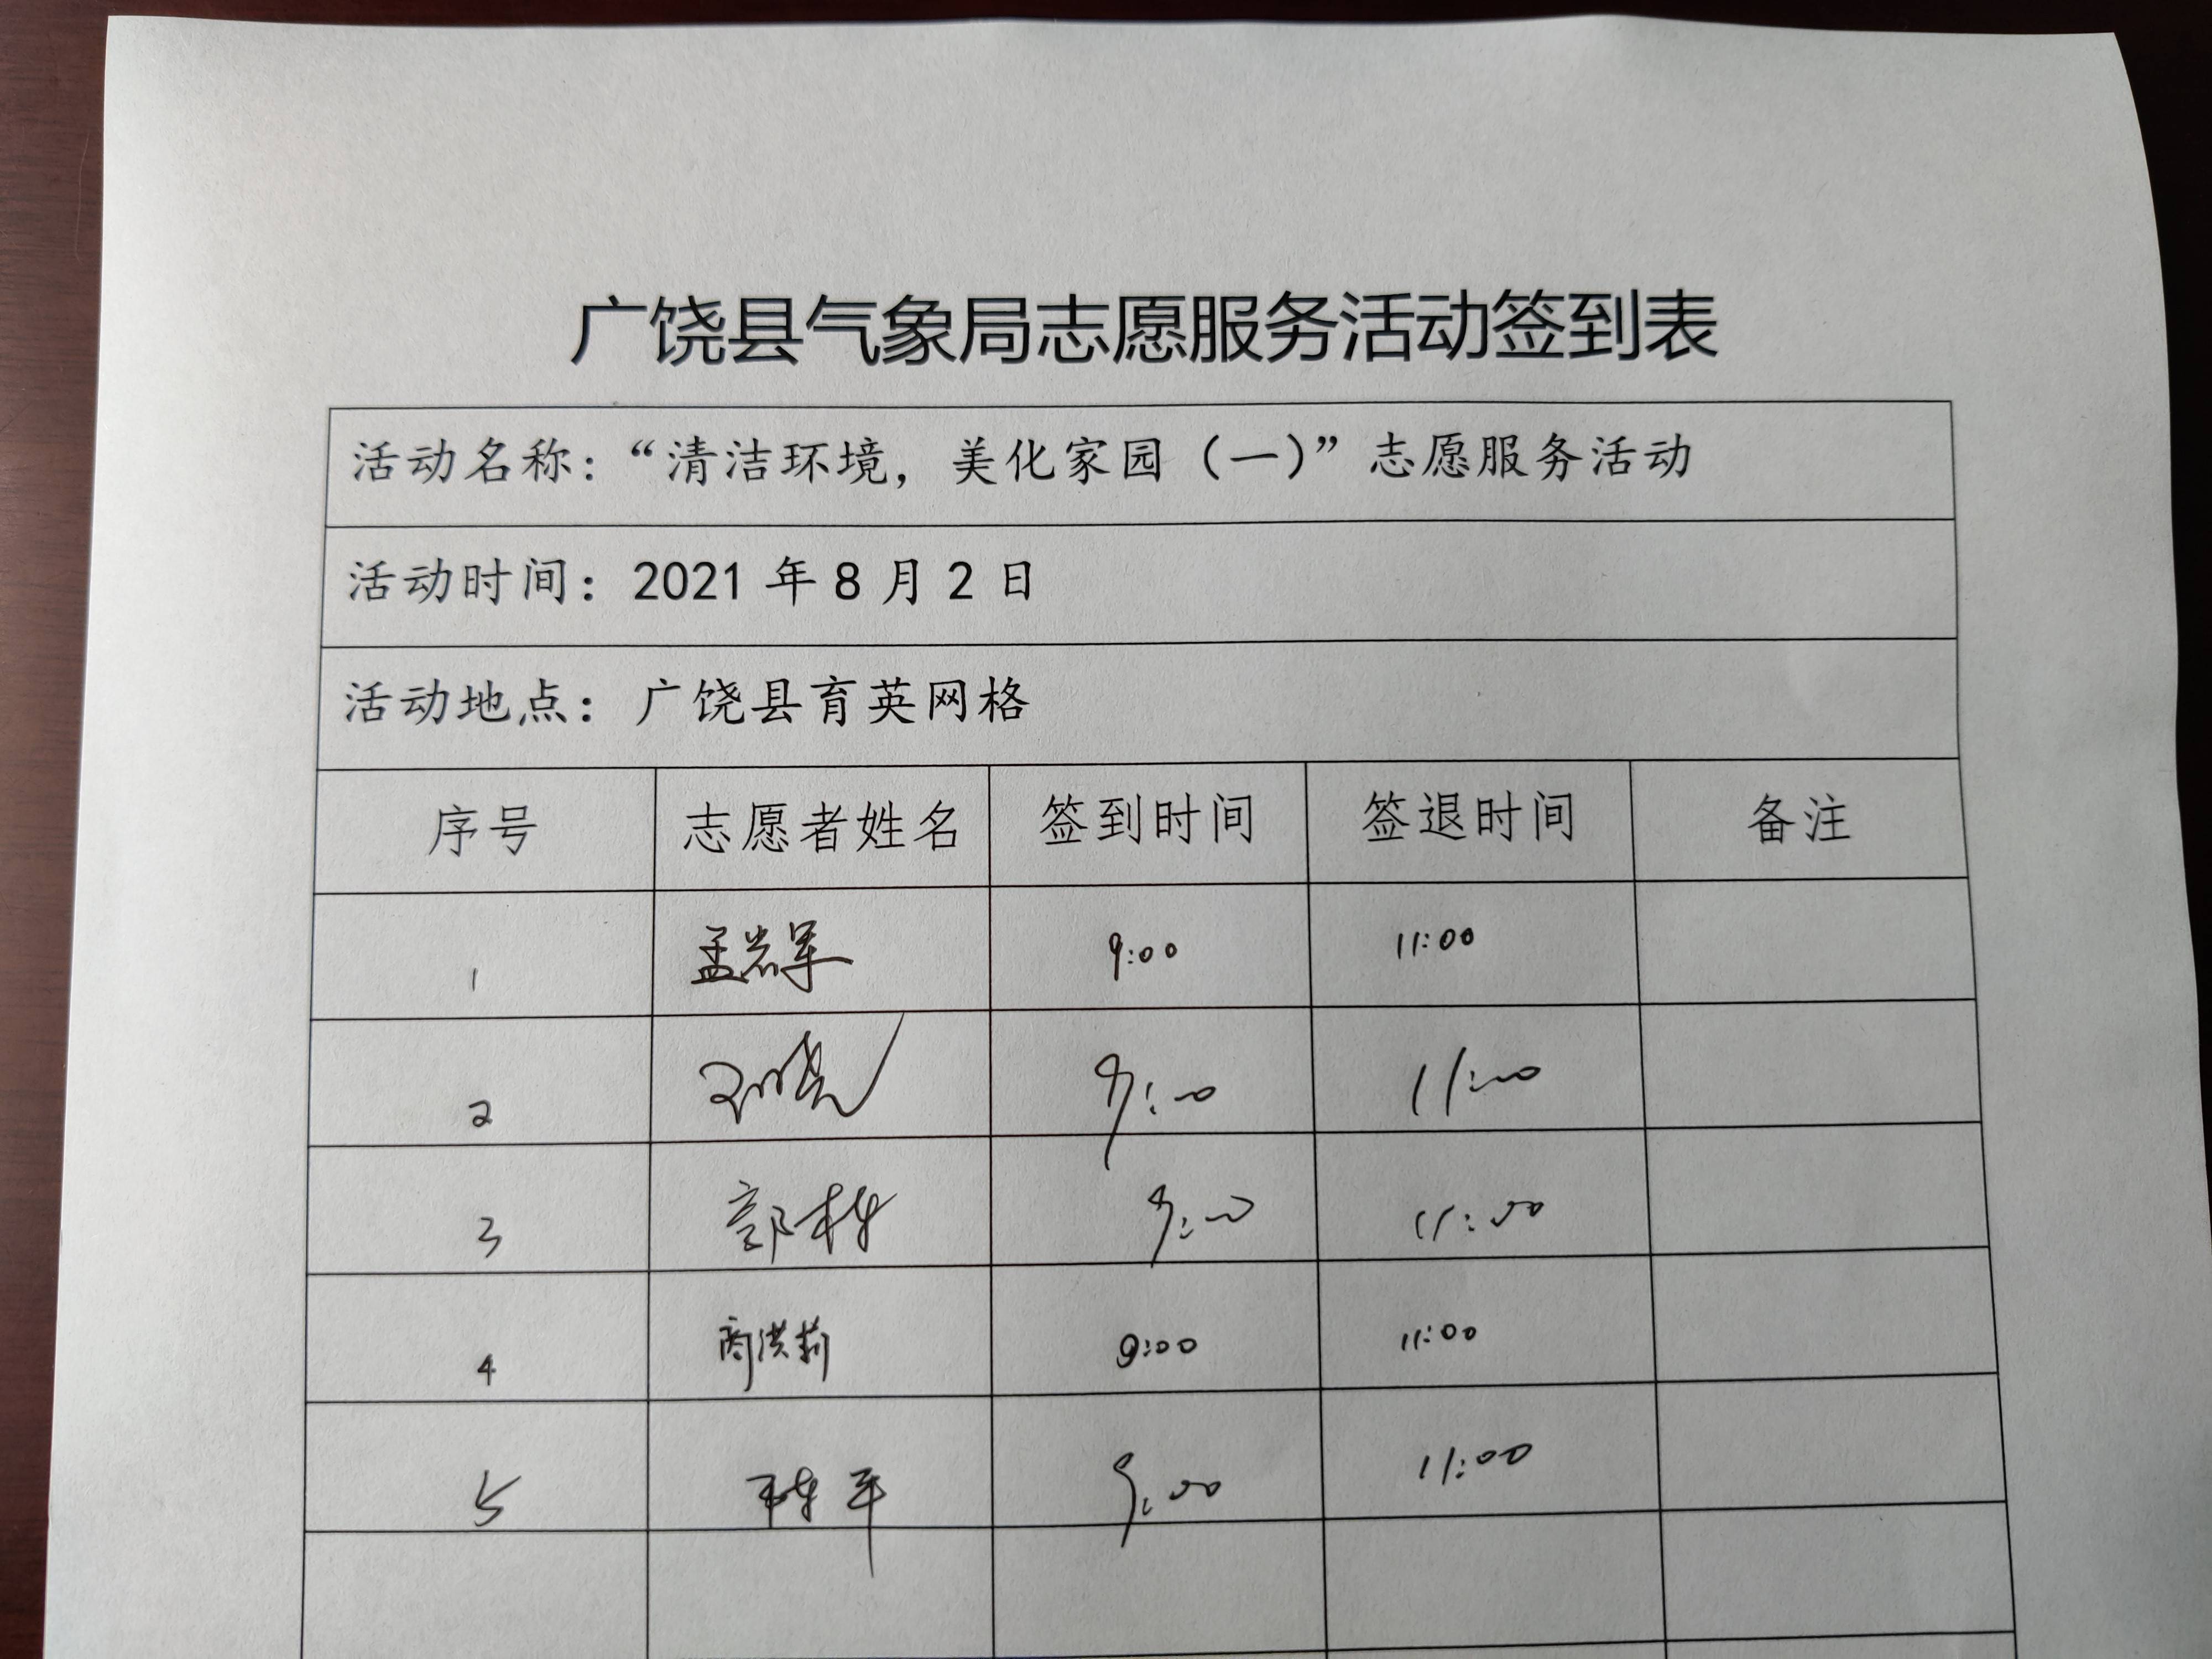 广饶县气象局志愿服务活动签到表
活动名称：“清洁环境，美化家园（一）”志愿服务活动
活动时间：2021 年 8 月 2 日
活动地点：广饶县育英网格
序号 志愿者姓名 签到时间 签退时间 备注
1 孟岩军 9:00 11:00
2 9:00 11:00
3 郭栋 9:00 11:00
4 商洪莉 9:00 11:00
5 9:00 11:00